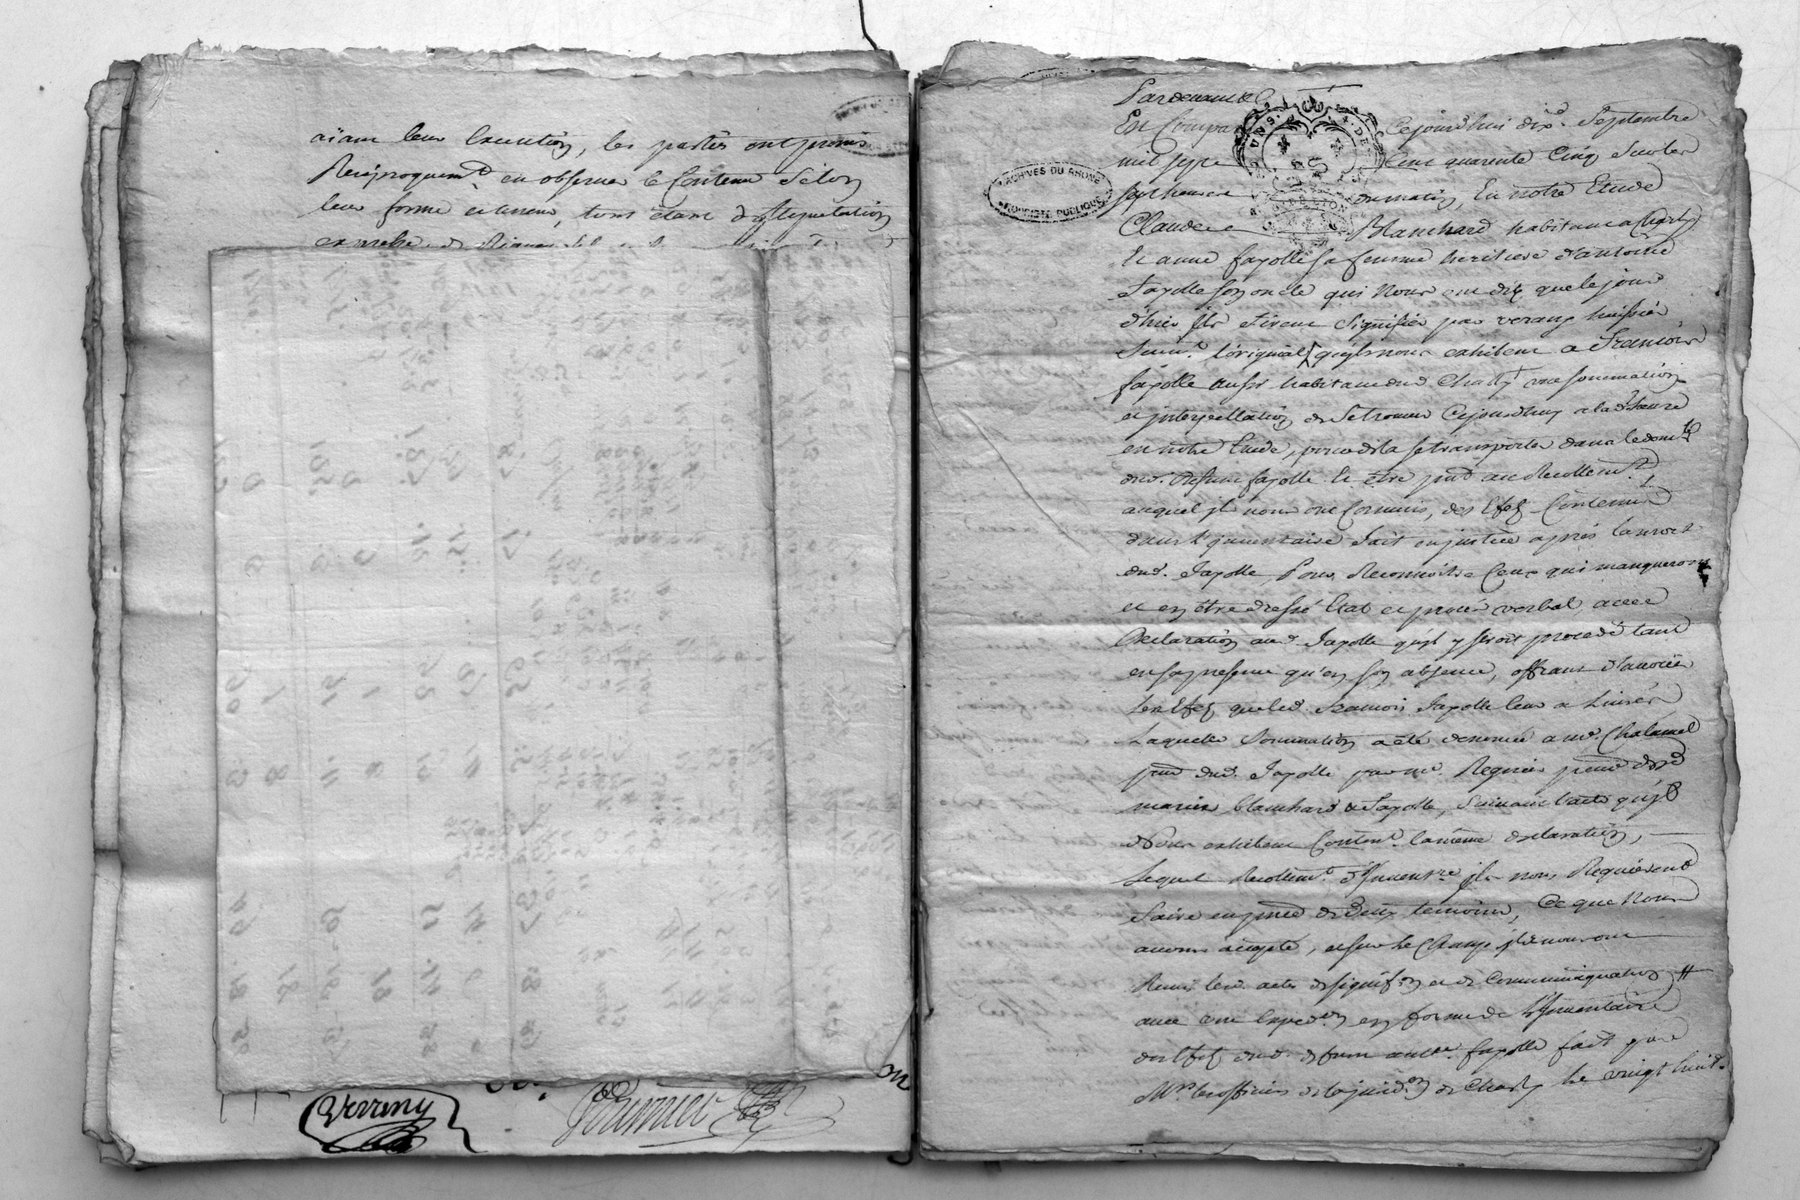 aïant leur Execution, les parties ont promis
Reciproquem.t en observer le Contenu Selon
leur forme et teneur, tous étant
Verrany
Fournier
ARCHIVES DU RHONE
PROPRIETE PUBLIQUE
Pardevant
Est Compa Cejourdhui dix.e Septembre
mil sept Cent quarente Cinq Sur les
sept heures du matin, En notre Etude
Claude Blanchard habitant a Charly
Et anne fayolle sa femme heritiere d'antoine
fayolle son oncle qui Nous ont dit que le jour
d'hier ils firent Signifier par verany huissier
Suiv.t l'original qu'ils nous exhibent a François
fayolle aussi habitant dud. Charly une sommation
et jnterpellation de Se trouver Cejourdhuy a lad. heure
en notre Etude, pour de la se transporter dans le dom.le
dud. deffunt fayolle Et être pnt au Recollem.t
auquel jls nous ont Commis, des Effets Contenus
dans L'jnventaire fait en justice aprés la mort
dud. fayolle, Pour Reconnoitre Ceux qui manqueront
et en être dressé Etat et procés verbal avec
Declaration aud. fayolle qu'il y seroit procedé tant
en son presence qu'en son absence, offrant d'avoüer
les Effets que led. François fayolle leur a Livrés
Laquelle Sommation a eté denoncée a me. Chalamel
pnr dud. fayolle par me. Regnier pnr desd.
mariés blanchard & fayolle, Suivant l'acte qu'ils
Nous exhibent Conten.t la même declaration,
Lequel Recollem.t d'Inven.re jls nous Requierent
faire en pnce de Deux temoins, Ce que Nous
avons accepté, et sur le Champ jls nous ont
Remis les d. actes de signif.on et de Communiquation
avec une Exped.on en forme de L'Inventaire
des Effets dud. defunt anto.e fayolle fait par
Mrs. les officiers de la jurid.on de Charly le vingt huit